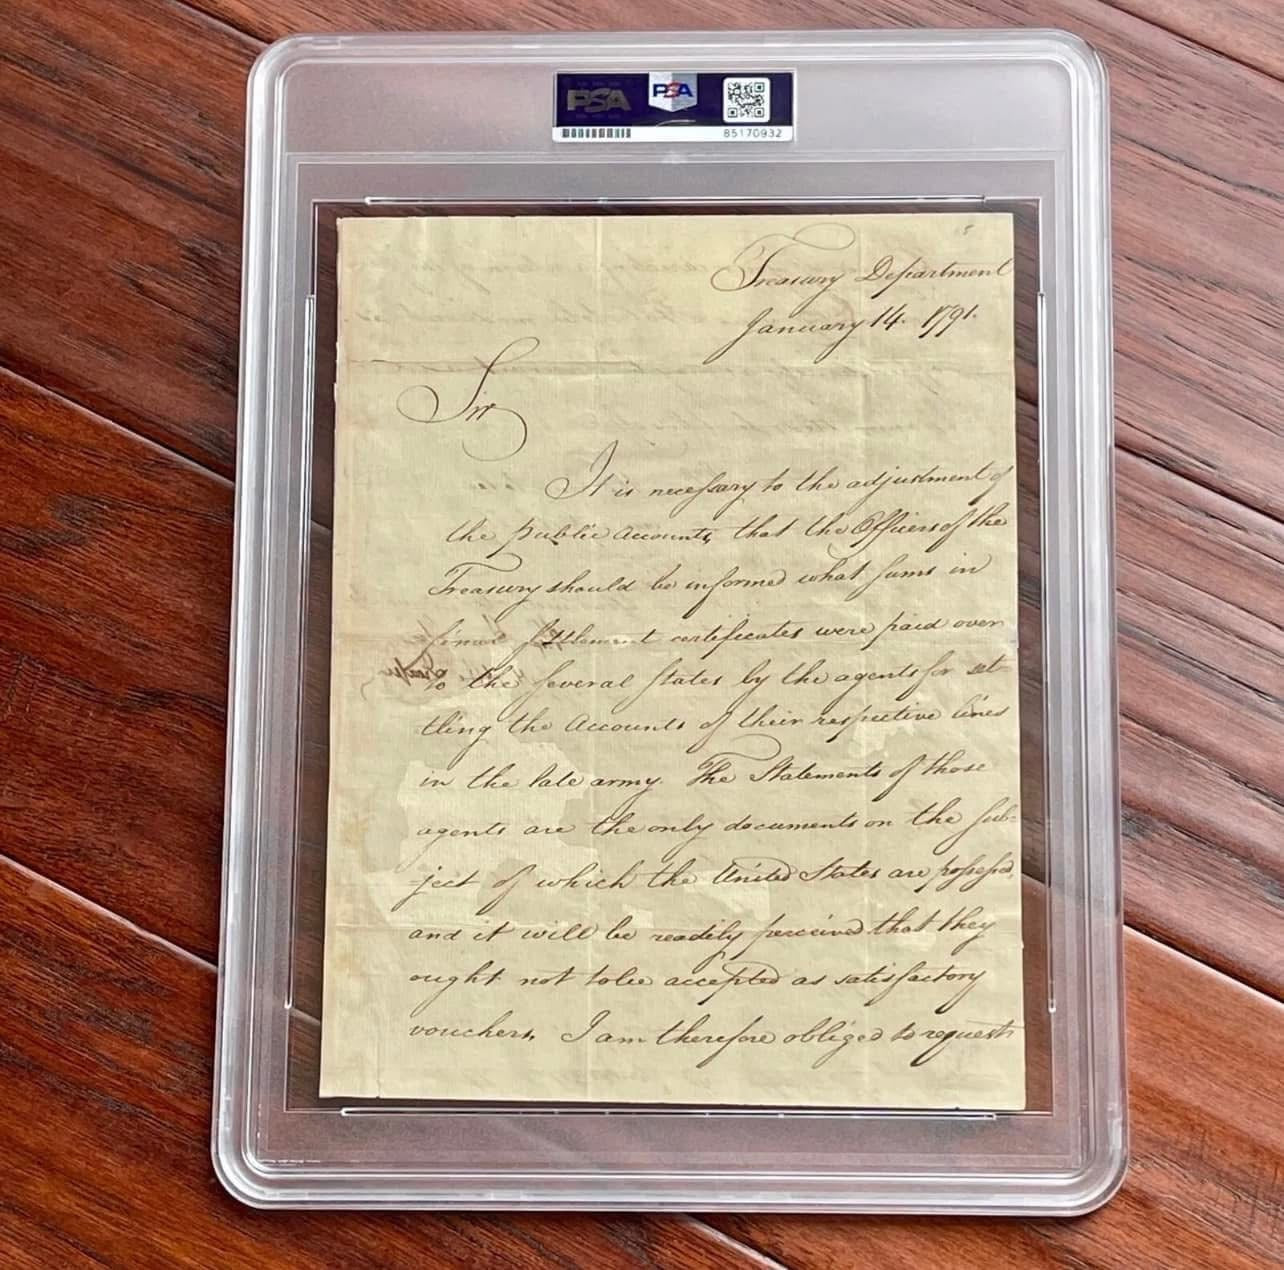 PSA
PSA
85170932
5
Treasury Department
January 14. 1791.
Sir
It is necessary to the adjustment of
the public accounts, that the Officers of the
Treasury should be informed what sums in
final settlement certificates were paid over
to the several States by the agents for set
tling the accounts of their respective lines
in the late army. The Statements of those
agents are the only documents on the sub-
ject of which the United States are possessed,
and it will be readily perceived that they
ought not to be accepted as satisfactory
vouchers. I am therefore obliged to request